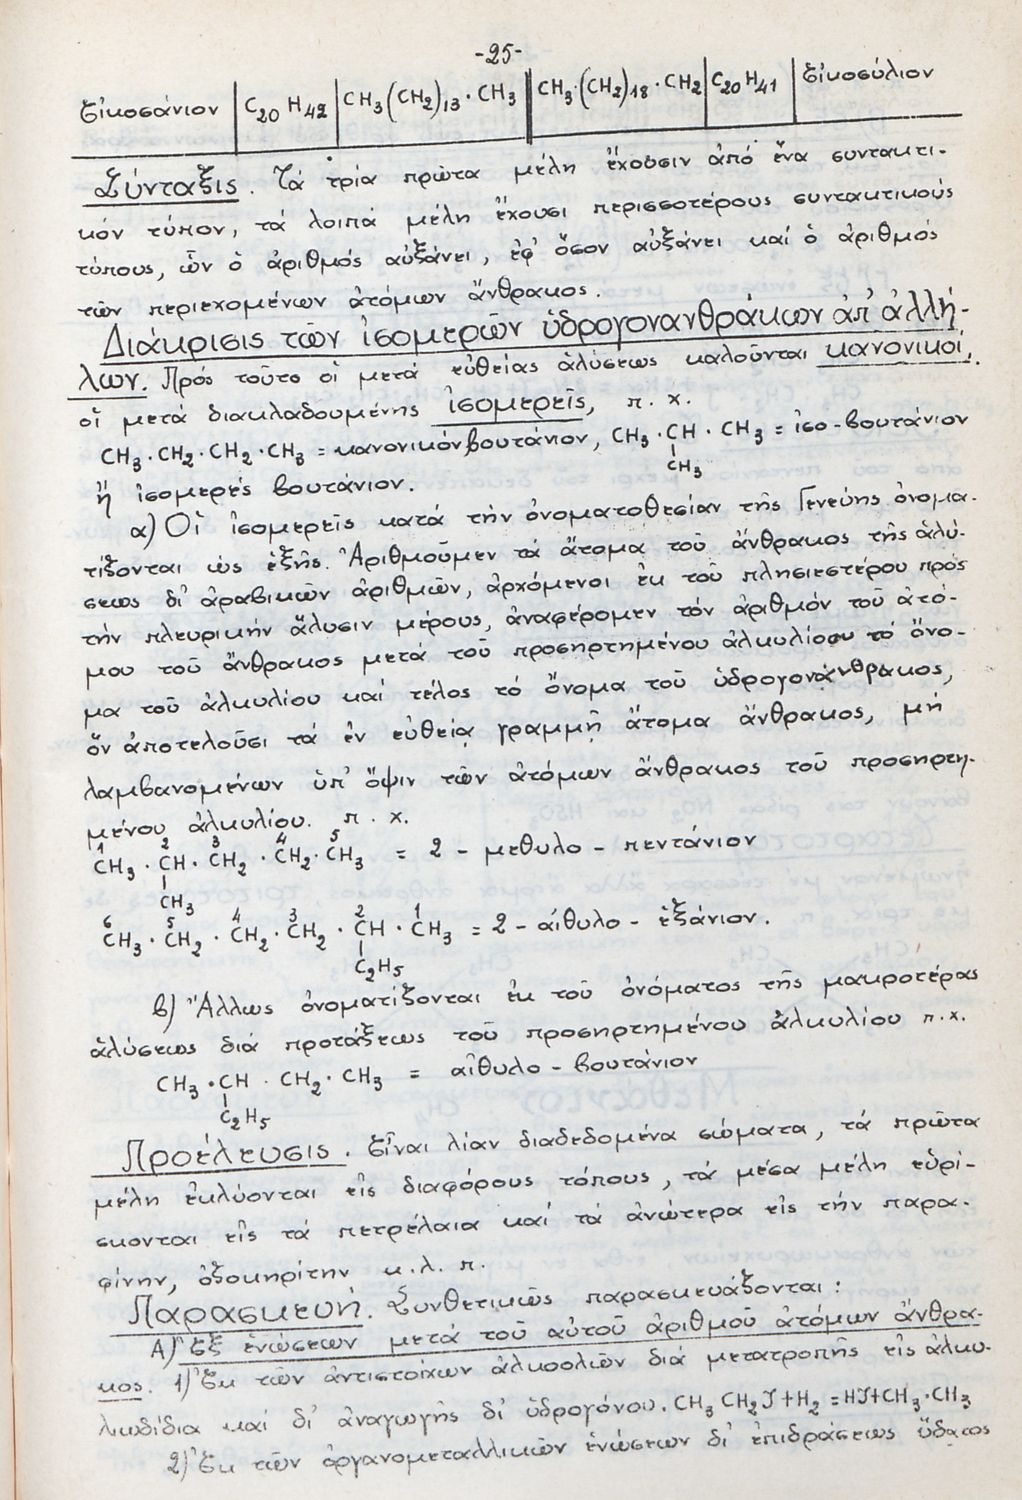 -25-
Εἰκοσάνιον | C20 H42 | CH3(CH2)13·CH3 | CH3·(CH2)18·CH2 | C20H41 | Εἰκοσύλιον
Σύνταξις. Τά τρία πρῶτα μέλη ἔχουσιν ἀπό ἕνα συντακτι-
κόν τύπον, τά λοιπά μέλη ἔχουσι περισσοτέρους συντακτικούς
τύπους, ὧν ὁ ἀριθμός αὐξάνει, ἐφ' ὅσον αὐξάνει καί ὁ ἀριθμός
τῶν περιεχομένων ἀτόμων ἄνθρακος.
Διάκρισις τῶν ἰσομερῶν ὑδρογονανθράκων ἀπ' ἀλλή-
λων. Πρός τοῦτο οἱ μετά εὐθείας ἀλύσεως καλοῦνται κανονικοί,
οἱ μετά διακλαδουμένης ἰσομερεῖς, π.χ.
CH3·CH2·CH2·CH3 = κανονικόν βουτάνιον, CH3·CH·CH3 = ἰσο-βουτάνιον
CH3
ἤ ἰσομερές βουτάνιον.
α) Οἱ ἰσομερεῖς κατά τήν ὀνοματοθεσίαν τῆς Γενεύης ὀνομα-
τίζονται ὡς ἑξῆς. Ἀριθμοῦμεν τά ἄτομα τοῦ ἄνθρακος τῆς ἀλύ-
σεως δι' ἀραβικῶν ἀριθμῶν, ἀρχόμενοι ἐκ τοῦ πλησιεστέρου πρός
τήν πλευρικήν ἄλυσιν μέρους, ἀναφέρομεν τόν ἀριθμόν τοῦ ἀτό-
μου τοῦ ἄνθρακος μετά τοῦ προσηρτημένου ἀλκυλίου τό ὄνο-
μα τοῦ ἀλκυλίου καί τέλος τό ὄνομα τοῦ ὑδρογονάνθρακος,
ὅν ἀποτελοῦσι τά ἐν εὐθείᾳ γραμμῇ ἄτομα ἄνθρακος, μή
λαμβανομένων ὑπ' ὄψιν τῶν ἀτόμων ἄνθρακος τοῦ προσηρτη-
μένου ἀλκυλίου. π.χ.
1 2 3 4 5
CH3·CH·CH2·CH2·CH3 = 2 - μεθυλο - πεντάνιον
CH3
6 5 4 3 2 1
CH3·CH2·CH2·CH2·CH·CH3 = 2 - αἰθυλο - ἑξάνιον.
C2H5
β) Ἄλλως ὀνοματίζονται ἐκ τοῦ ὀνόματος τῆς μακροτέρας
ἀλύσεως διά προτάξεως τοῦ προσηρτημένου ἀλκυλίου π.χ.
CH3·CH·CH2·CH3 = αἰθυλο - βουτάνιον
C2H5
Προέλευσις. Εἶναι λίαν διαδεδομένα σώματα, τά πρῶτα
μέλη ἐκλύονται εἰς διαφόρους τόπους, τά μέσα μέλη εὑρί-
σκονται εἰς τά πετρέλαια καί τά ἀνώτερα εἰς τήν παρα-
φίνην, ὀζοκηρίτην κ.λ.π.
Παρασκευή. Συνθετικῶς παρασκευάζονται:
Α) Ἐξ ἑνώσεων μετά τοῦ αὐτοῦ ἀριθμοῦ ἀτόμων ἄνθρα-
κος. 1) Ἐκ τῶν ἀντιστοίχων ἀλκοολῶν διά μετατροπῆς εἰς ἀλκυ-
λιωδίδια καί δι' ἀναγωγῆς δι' ὑδρογόνου. CH3 CH2J+H2=HJ+CH3·CH3
2) Ἐκ τῶν ὀργανομεταλλικῶν ἑνώσεων δι' ἐπιδράσεως ὕδατος